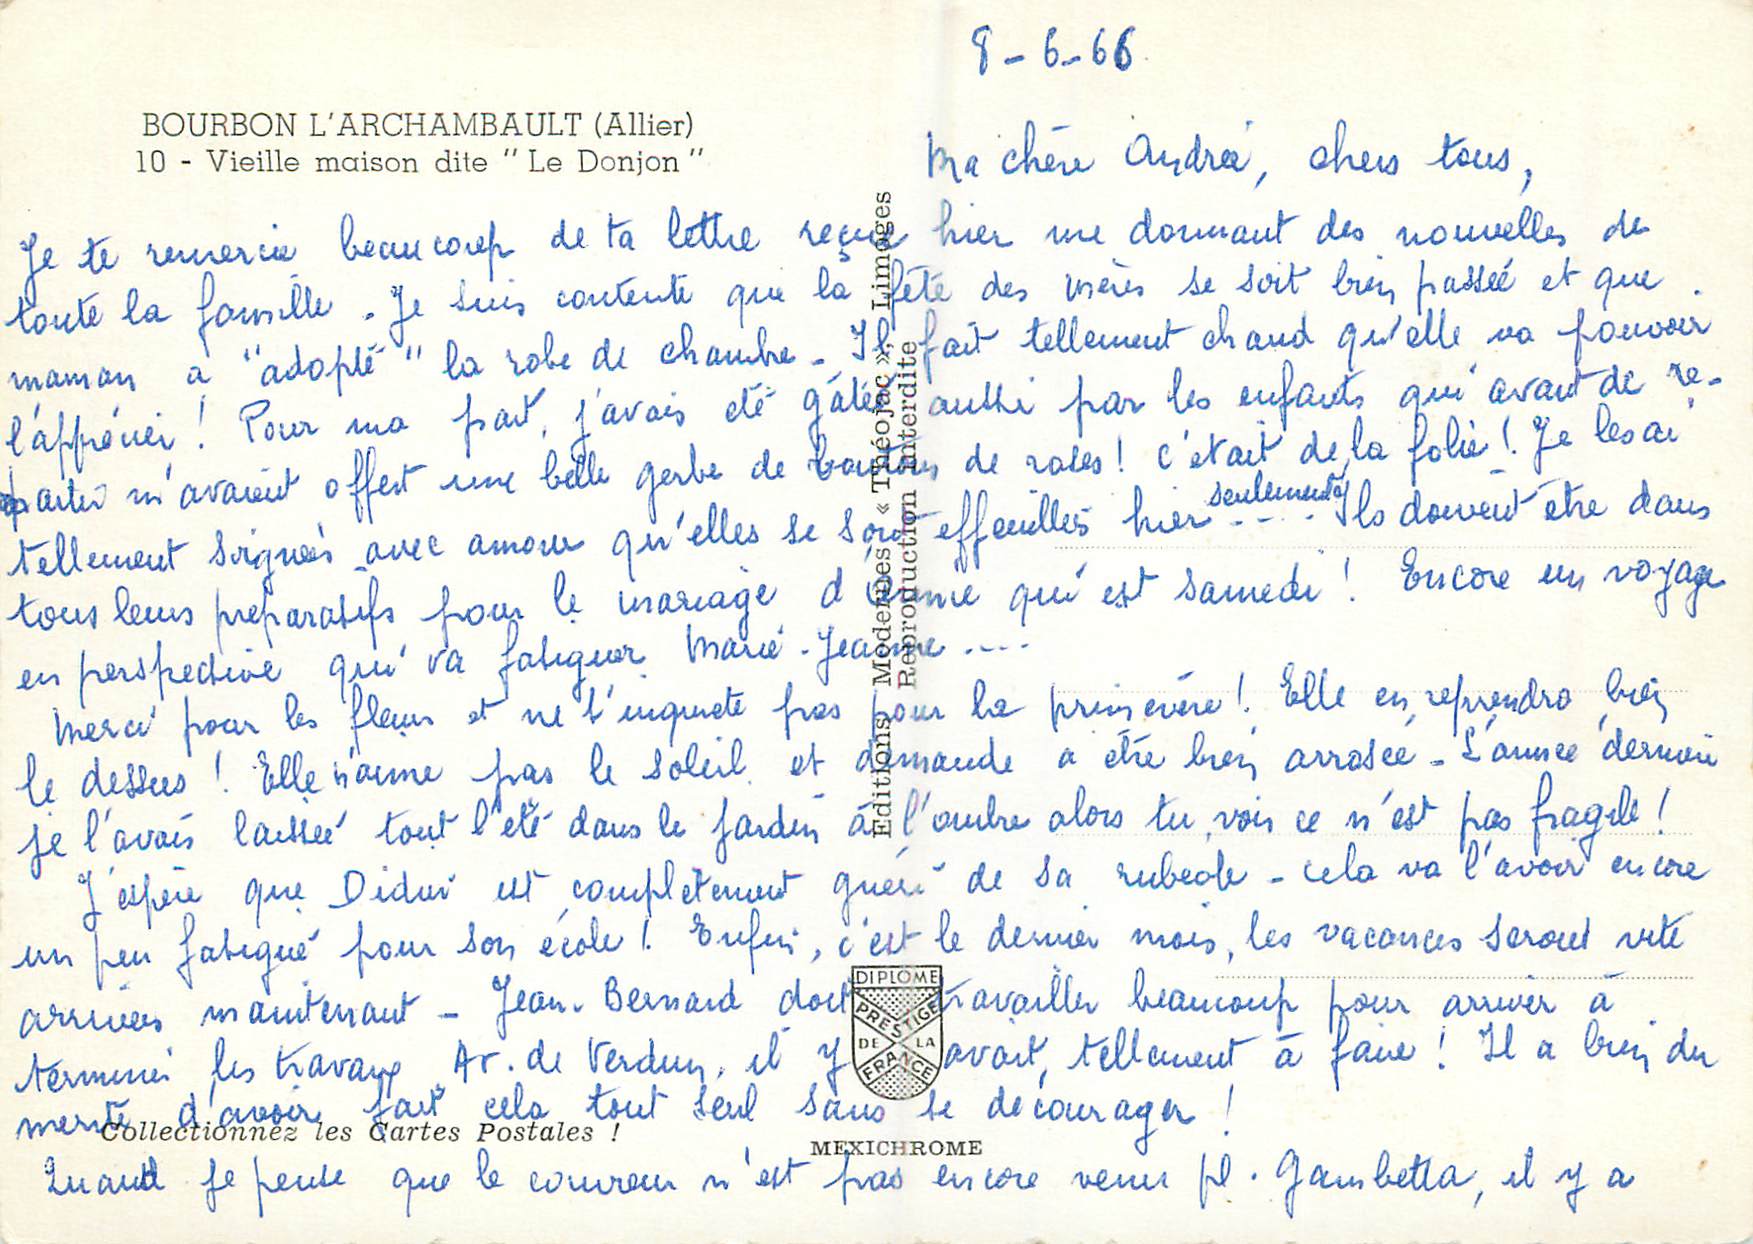 8-6-66
BOURBON L'ARCHAMBAULT (Allier)
10 - Vieille maison dite " Le Donjon "
Ma chère Andrée, chers tous,
Je te remercie beaucoup de ta lettre reçue hier me donnant des nouvelles de
toute la famille. Je suis contente que la fête des mères se soit bien passée et que
maman a "adopté" la robe de chambre - Il fait tellement chaud qu'elle va pouvoir
l'apprécier ! Pour ma part, j'avais été gâtée aussi par les enfants qui avant de re-
partir m'avaient offert une belle gerbe de boutons de roses ! c'était de la folie ! Je les ai
tellement soignées avec amour qu'elles se sont effeuillées hier seulement .... Ils doivent être dans
tous leurs préparatifs pour le mariage d'Annie qui est samedi ! Encore un voyage
en perspective qui va fatiguer Marie-Jeanne ....
Merci pour les fleurs et ne t'inquiète pas pour la primevère ! Elle en reprendra bien
le dessus ! Elle n'aime pas le soleil et demande à être bien arrosée - L'année dernière
je l'avais laissée tout l'été dans le jardin à l'ombre alors tu vois ce n'est pas fragile !
J'espère que Didier est complètement guéri de sa rubéole - cela va l'avoir encore
un peu fatigué pour son école ! Enfin, c'est le dernier mois, les vacances seront vite
arrivées maintenant - Jean-Bernard doit travailler beaucoup pour arriver à
terminer les travaux Av. de Verdun, il y avait tellement à faire ! Il a bien du
mérite d'avoir fait cela tout seul sans se décourager !
Quand je pense que le couvreur n'est pas encore venu pl. Gambetta, il y a
Editions Modernes « Théojac », Limoges
Reproduction interdite
DIPLOME
PRESTIGE
DE LA
FRANCE
Collectionnez les Cartes Postales !
MEXICHROME